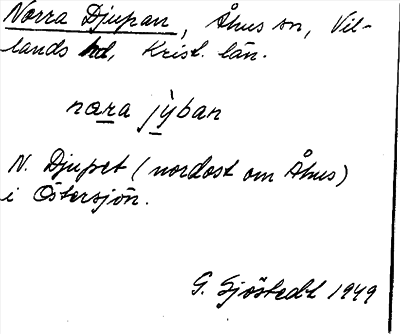 Norra Djupan, Åhus sn, Vil-
lands hd, Krist. län.
nora jỳban
N. Djupet (nordost om Åhus)
i Östersjön.
G. Sjöstedt 1949